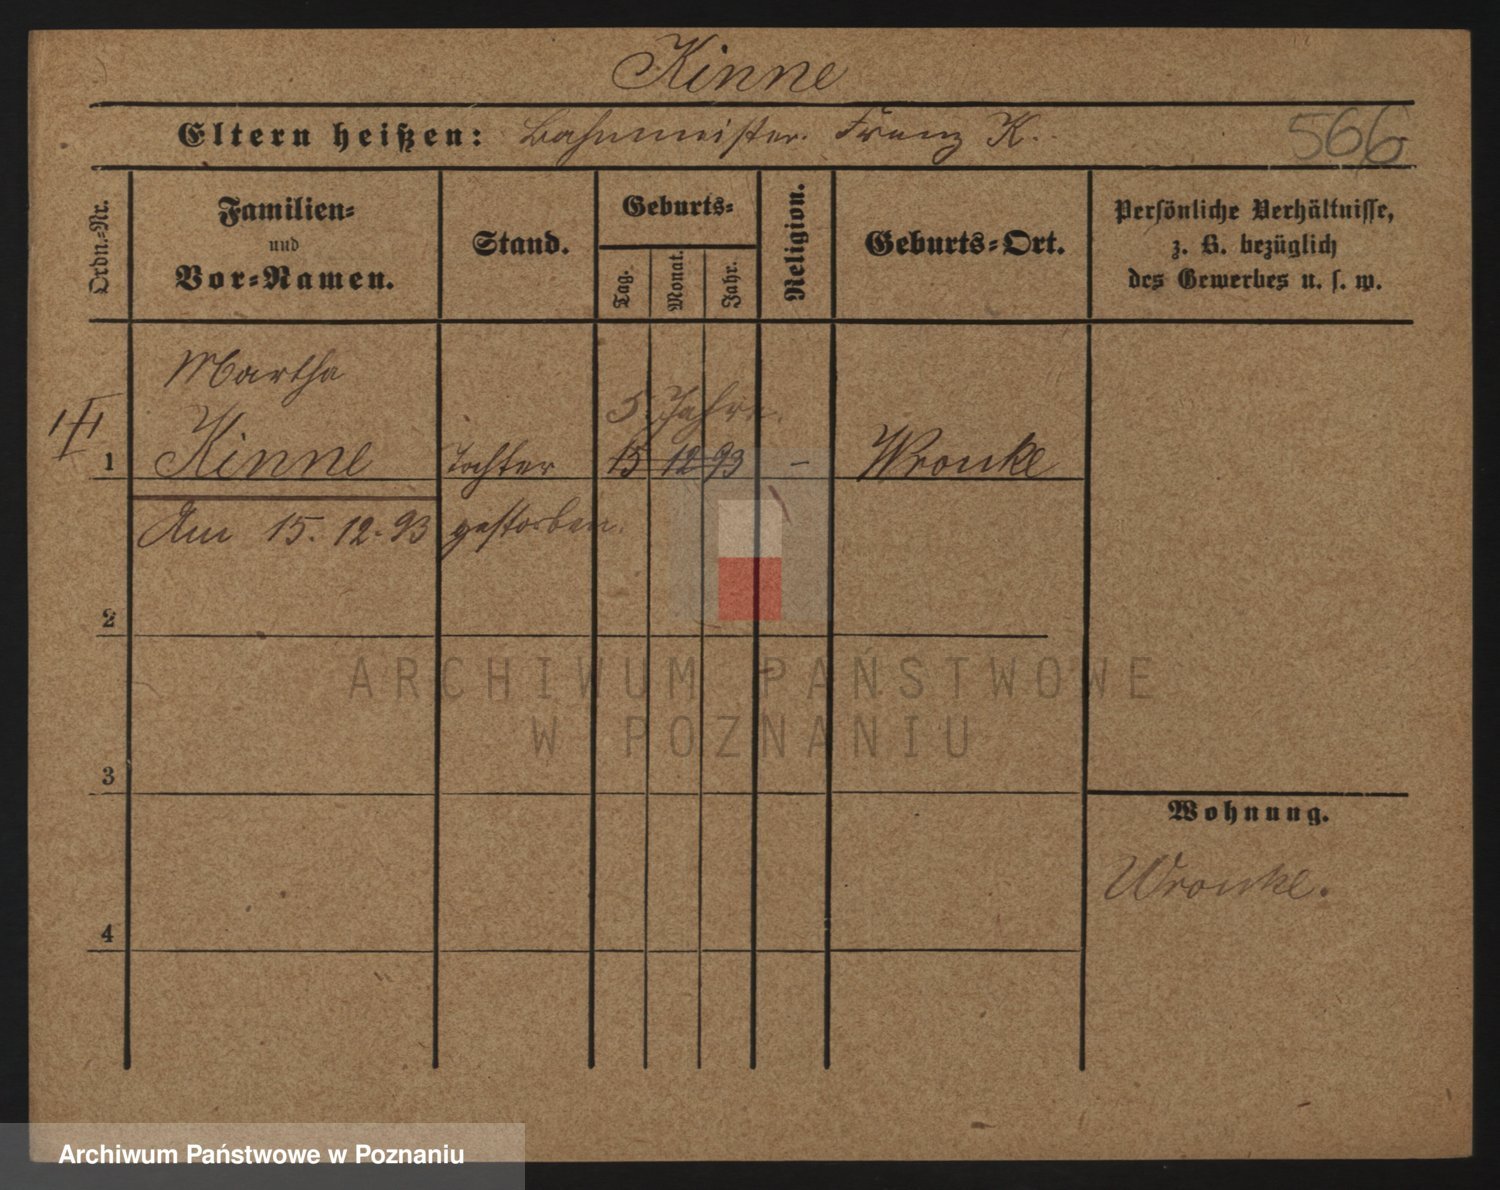 Kinne
Eltern heißen: Bahnmeister Franz K.
566
Ordn.-Nr.
Familien-
und
Vor-Namen.
Stand.
Geburts-
Tag.
Monat.
Jahr.
Religion.
Geburts-Ort.
Persönliche Verhältnisse,
z. B. bezüglich
des Gewerbes u. s. w.
Martha
5. Jahre.
1 Kinne Tochter 15 12 93 – Wronke
Am 15. 12. 93 gestorben.
2
ARCHIWUM PAŃSTWOWE
W POZNANIU
3
Wohnung.
Wronke.
4
Archiwum Państwowe w Poznaniu